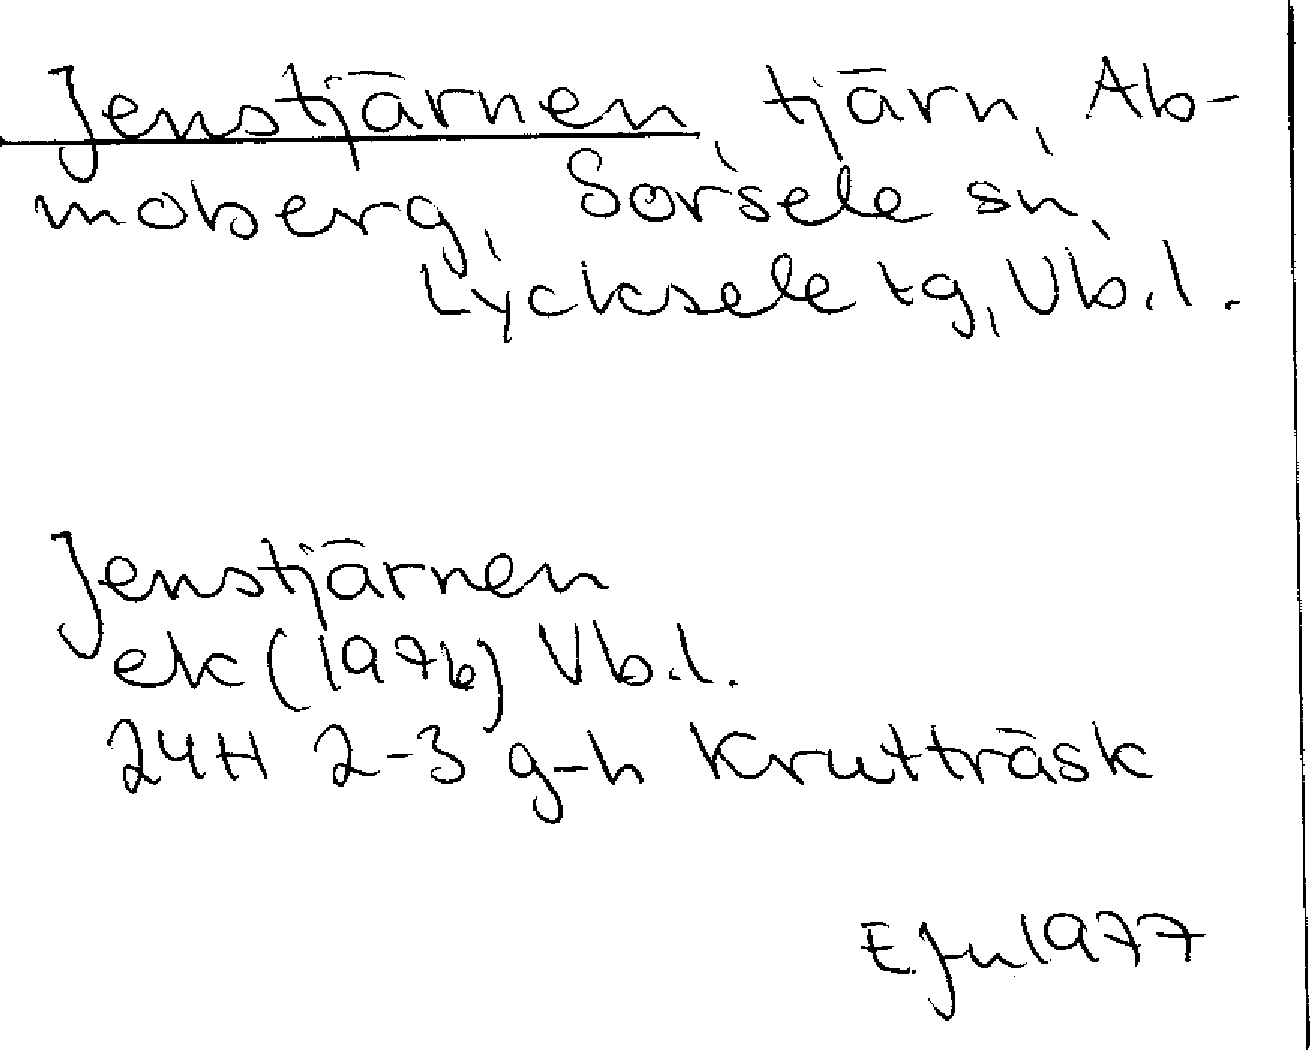 Jenstjärnen, tjärn, Ab-
moberg, Sorsele sn,
Lycksele tg, Vb.l.
Jenstjärnen
ek (1976) Vb.l.
24H 2-3 g-h Krutträsk
EJu 1977